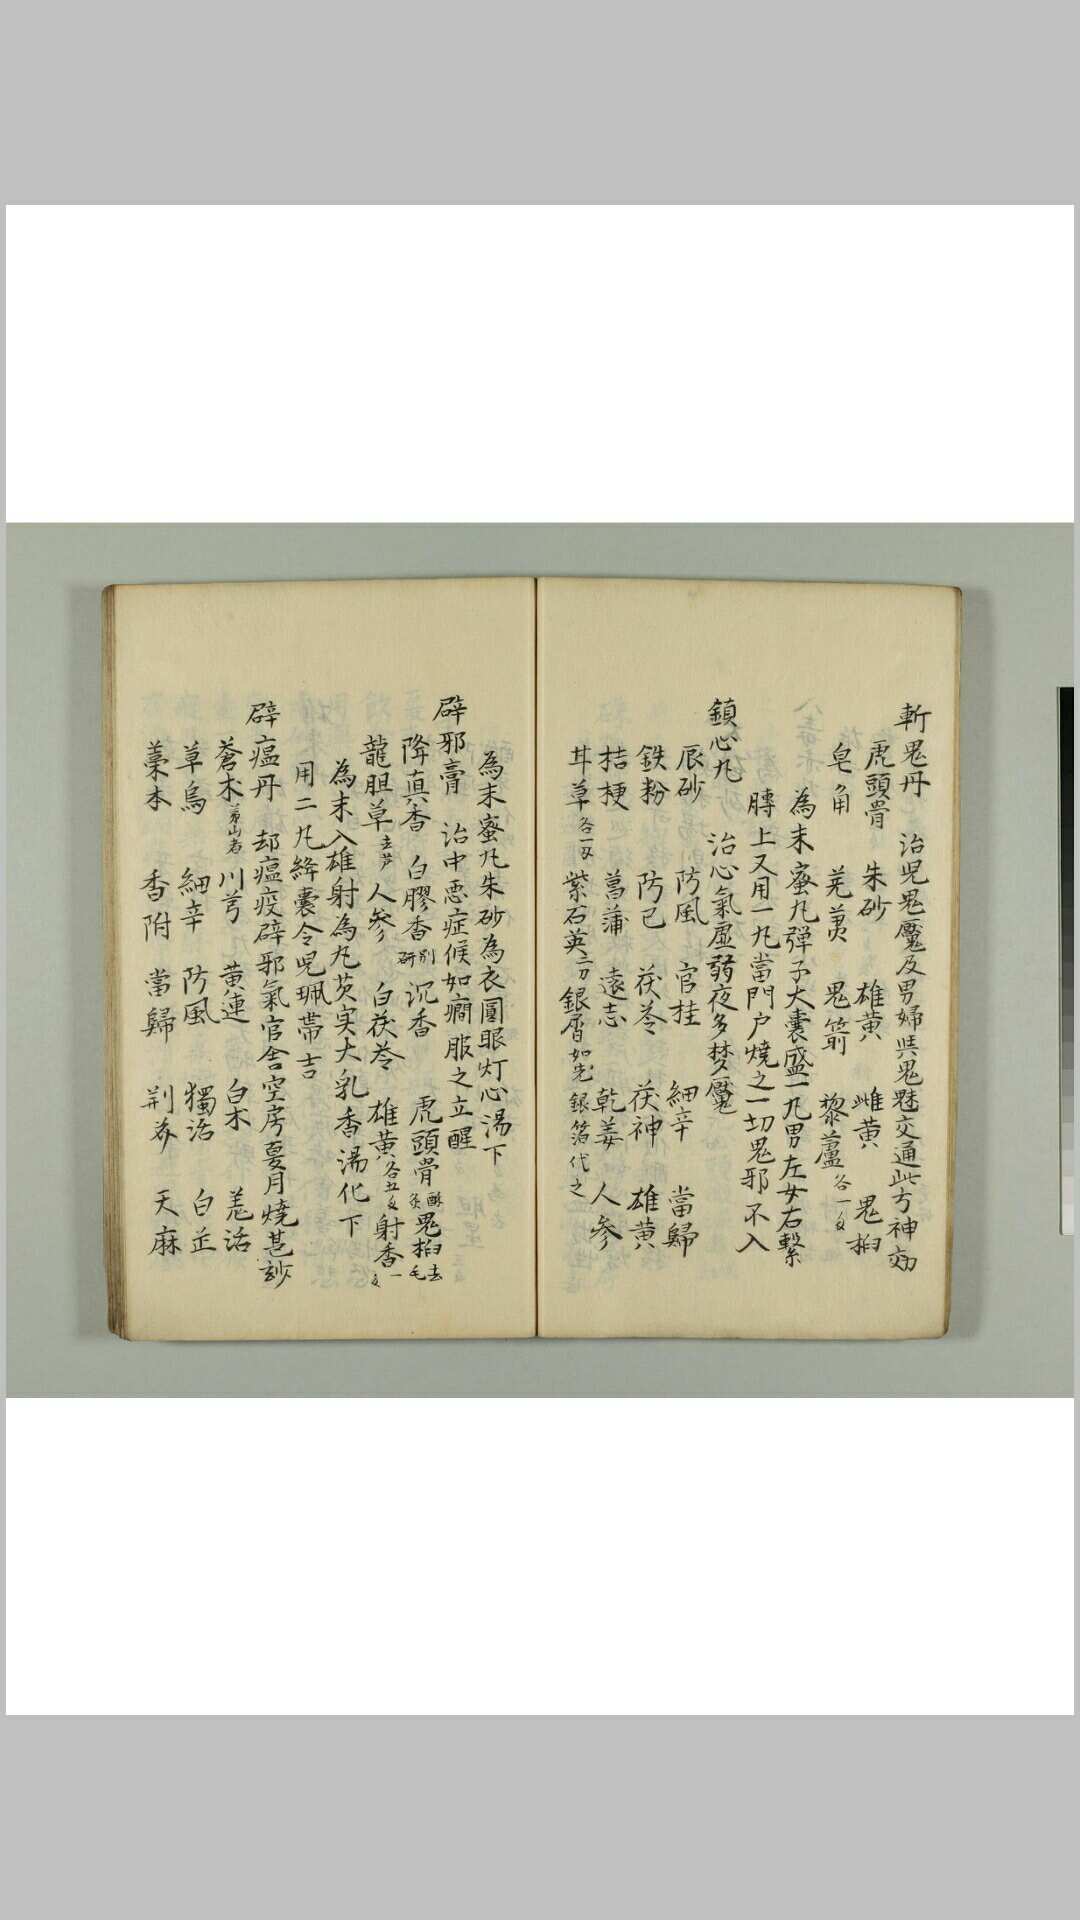 斬鬼丹 治児鬼魘及男婦与鬼魅交通此方神効
虎頭骨 朱砂 雄黄 雌黄 鬼臼
皂角 芜荑 鬼箭 藜蘆各一
為末蜜丸弾子大囊盛一丸男左女右繋
膊上又用一丸當門戸焼之一切鬼邪不入
鎮心丸 治心氣虚弱夜多梦魘
辰砂 防風 官桂 細辛 當歸
鉄粉 防已 茯苓 茯神 雄黄
桔梗 菖蒲 遠志 乾姜 人参
甘草各一 紫石英 銀屑如无銀箔代之
為末蜜丸朱砂為衣圓眼灯心湯下
辟邪膏 治中悪症候如癇服之立醒
降真香 白膠香別研 沉香 虎頭骨酥炙 鬼臼去毛
龍胆草去芦 人参 白茯苓 雄黄各五 射香一
為末入雄射為丸芡实大乳香湯化下
用二丸絳囊令児珮帯吉
辟瘟丹 却瘟疫辟邪氣官舎空房夏月焼甚玅
蒼朮茅山者 川芎 黄連 白朮 羌活
草烏 細辛 防風 獨活 白芷
藁本 香附 當歸 荆芥 天麻